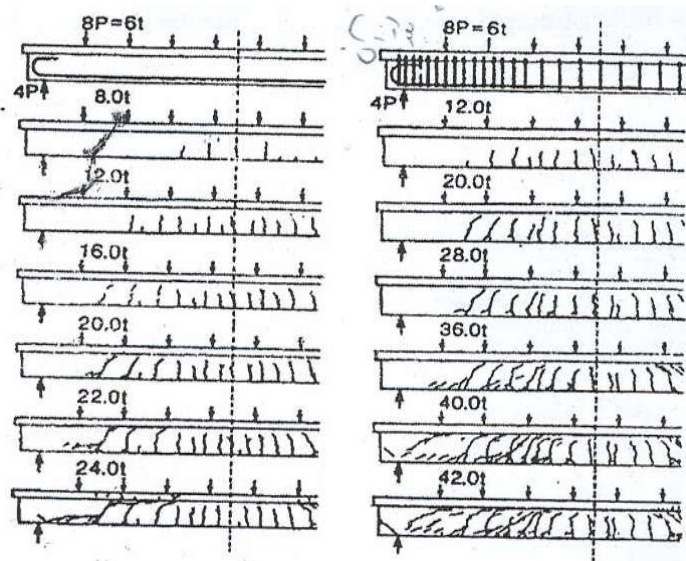 8P=6t
4P
8.0t
12.0t
16.0t
20.0t
22.0t
24.0t
8P=6t
4P
12.0t
20.0t
28.0t
36.0t
40.0t
42.0t